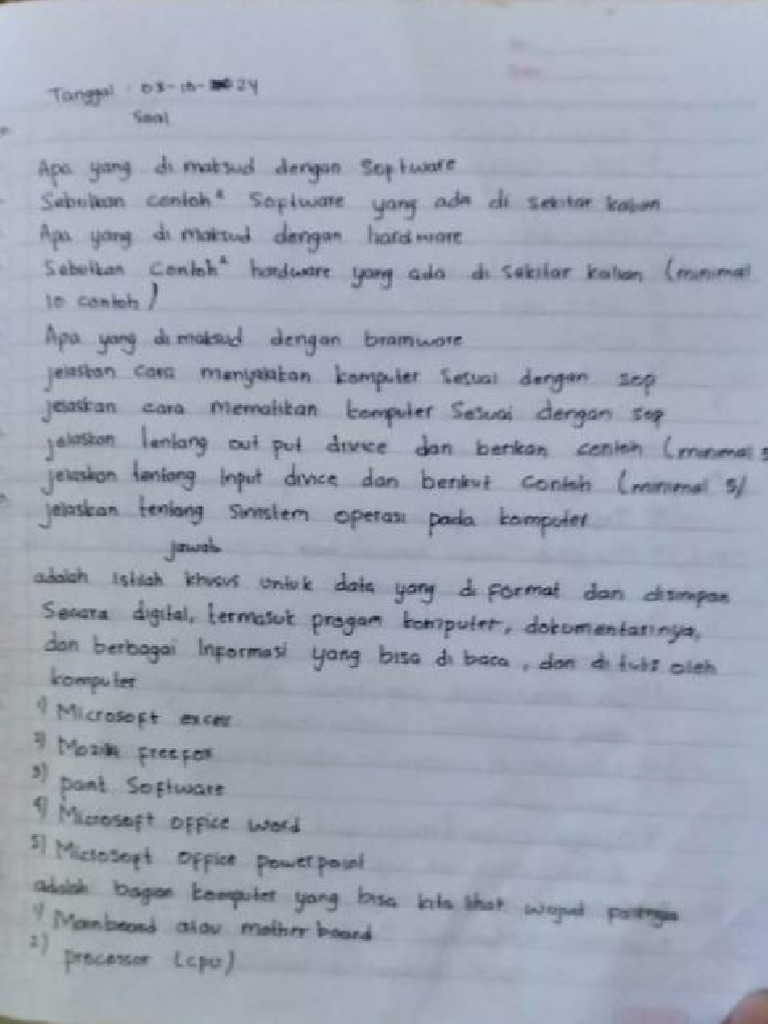 Tanggal : 03-10-24
Soal
Apa yang di maksud dengan Soptware
Sebutkan contoh² Soptware yang ada di sekitar kalian
Apa yang di maksud dengan hardware
Sebutkan Contoh² hardware yang ada di sekitar kalian (minimal
10 contoh)
Apa yang di maksud dengan brainware
jelaskan cara menyalakan komputer Sesuai dengan sop
jelaskan cara mematikan komputer Sesuai dengan sop
jelaskan tentang out put divice dan berikan contoh (minimal 5
jelaskan tentang Input divice dan berikut Contoh (minimal 5)
jelaskan tentang Sinistem operasi pada komputer
jawab
adalah istilah khusus untuk data yang di format dan disimpan
Secara digital, termasuk progam komputer, dokumentasinya,
dan berbagai Informasi yang bisa di baca, dan di tulis oleh
komputer
1) Microsoft excel
2) Mozila freefox
3) paint Software
4) Microsoft office word
5) Microsoft office powerpoint
adalah bagian komputer yang bisa kita lihat wujud
1) Mainboard atau mother board
2) processor (cpu)